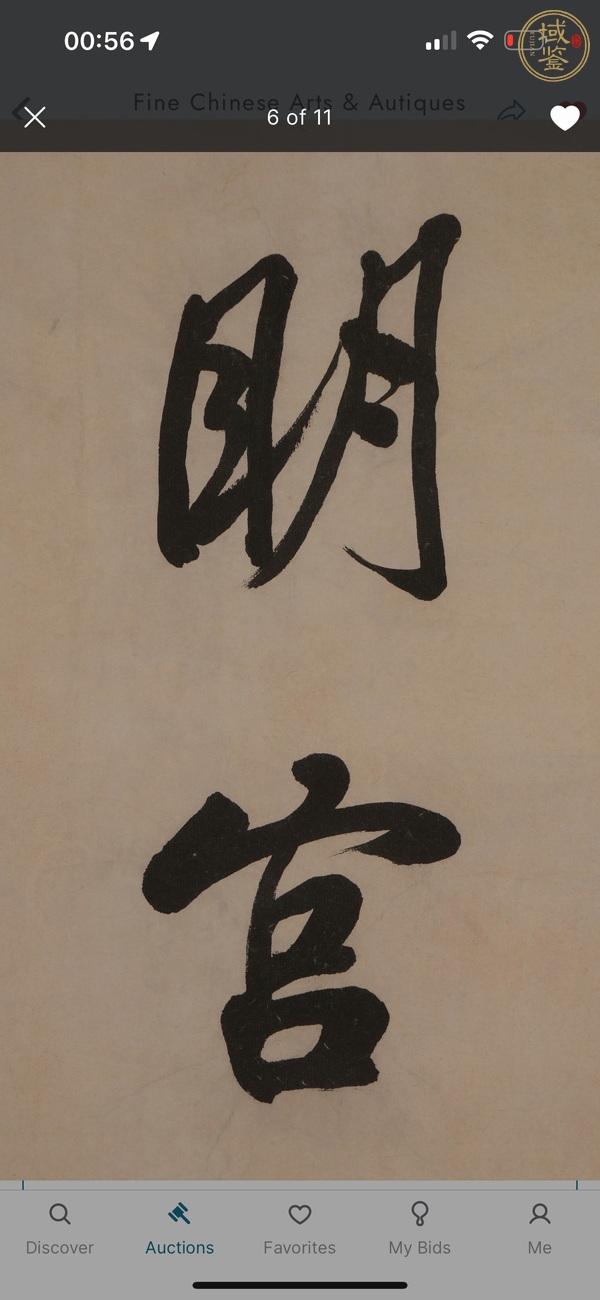 00:56
域鉴
Fine Chinese Arts & Autiques
6 of 11
明
官
Discover
Auctions
Favorites
My Bids
Me